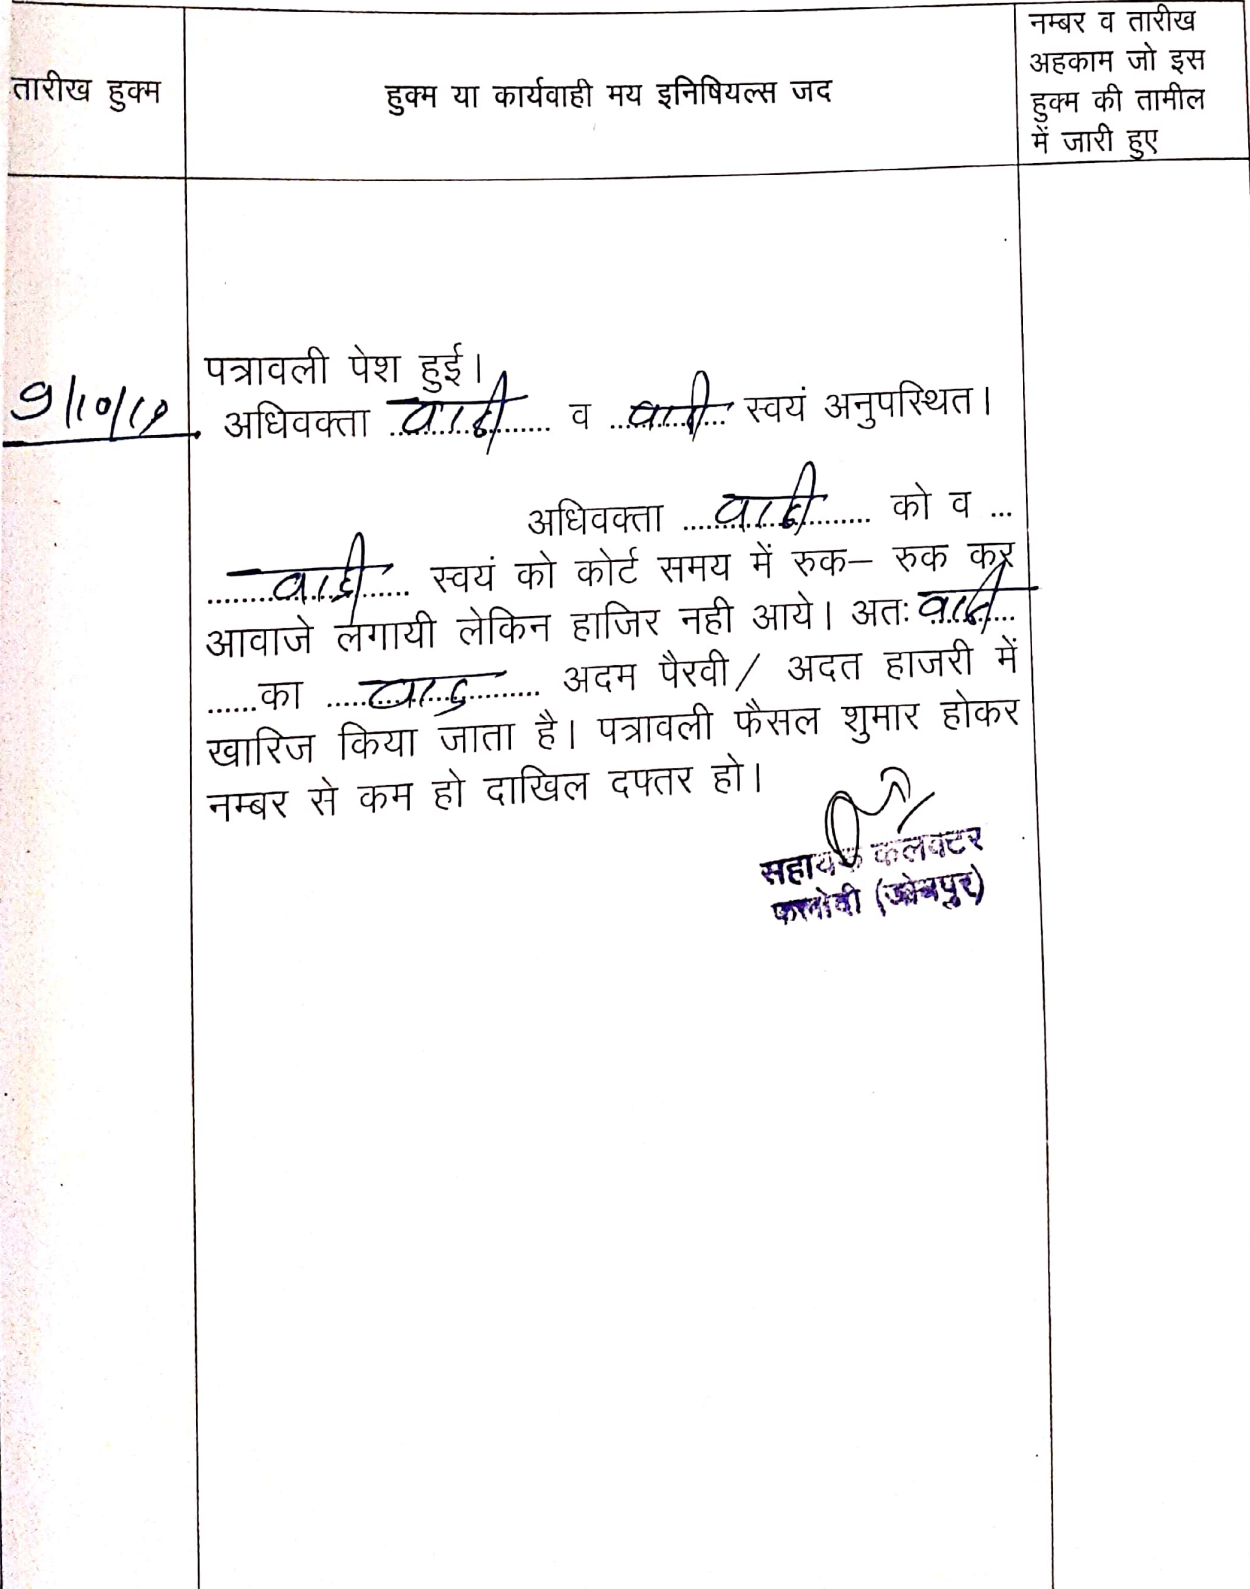 तारीख हुक्म
हुक्म या कार्यवाही मय इनिषियल्स जद
नम्बर व तारीख
अहकाम जो इस
हुक्म की तामील
में जारी हुए
पत्रावली पेश हुई।
9/10/19
अधिवक्ता ....वादी.... व ....वादी.... स्वयं अनुपस्थित।
अधिवक्ता ....वादी.... को व ...
....वादी.... स्वयं को कोर्ट समय में रुक– रुक कर
आवाजे लगायी लेकिन हाजिर नही आये। अतः वादी....
......का ....वाद.... अदम पैरवी/ अदत हाजरी में
खारिज किया जाता है। पत्रावली फैसल शुमार होकर
नम्बर से कम हो दाखिल दफ्तर हो।
सहायक कलक्टर
फलोदी (जोधपुर)